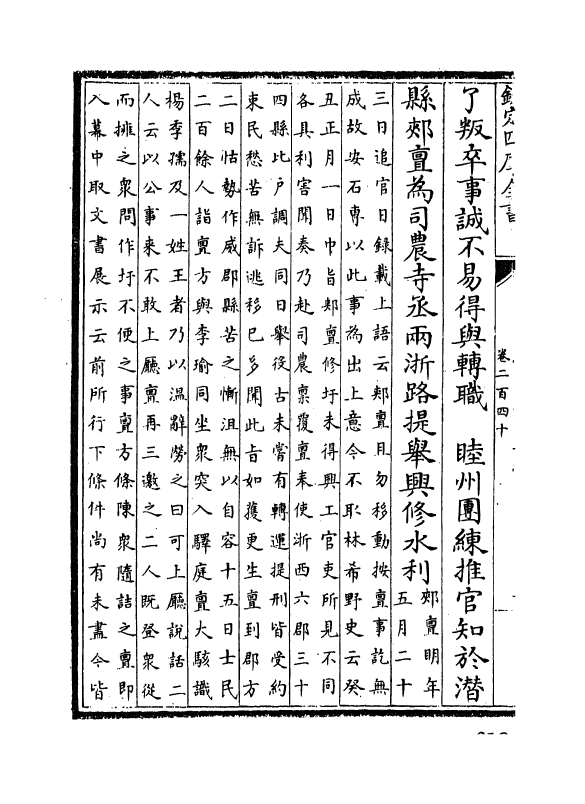 欽定四庫全書
卷二百四十
了叛卒事誠不易得與轉職　睦州團練推官知於潛
縣郟亶為司農寺丞兩浙路提舉興修水利郟亶明年五月二十
三日追官日録載上語云郟亶且勿移動按亶事訖無
成故安石専以此事為出上意今不取林希野史云癸
丑正月一日中旨郟亶修圩未得興工官吏所見不同
各具利害聞奏乃赴司農禀覆亶奉使浙西六郡三十
四縣比户調夫同日舉役古未嘗有轉運提刑皆受約
束民愁苦無訴逃移已多聞此旨如獲更生亶到郡方
二日怙勢作威郡縣苦之慚沮無以自容十五日士民
二百餘人詣亶方與李瑜同坐衆突入驛庭亶大駭識
楊季孺及一姓王者乃以温辭勞之曰可上㕔說話二
人云以公事来不敢上㕔亶再三邀之二人既登衆從
而擁之衆問作圩不便之事亶方條陳衆隨詰之亶即
入幕中取文書展示云前所行下條件尚有未盡今皆